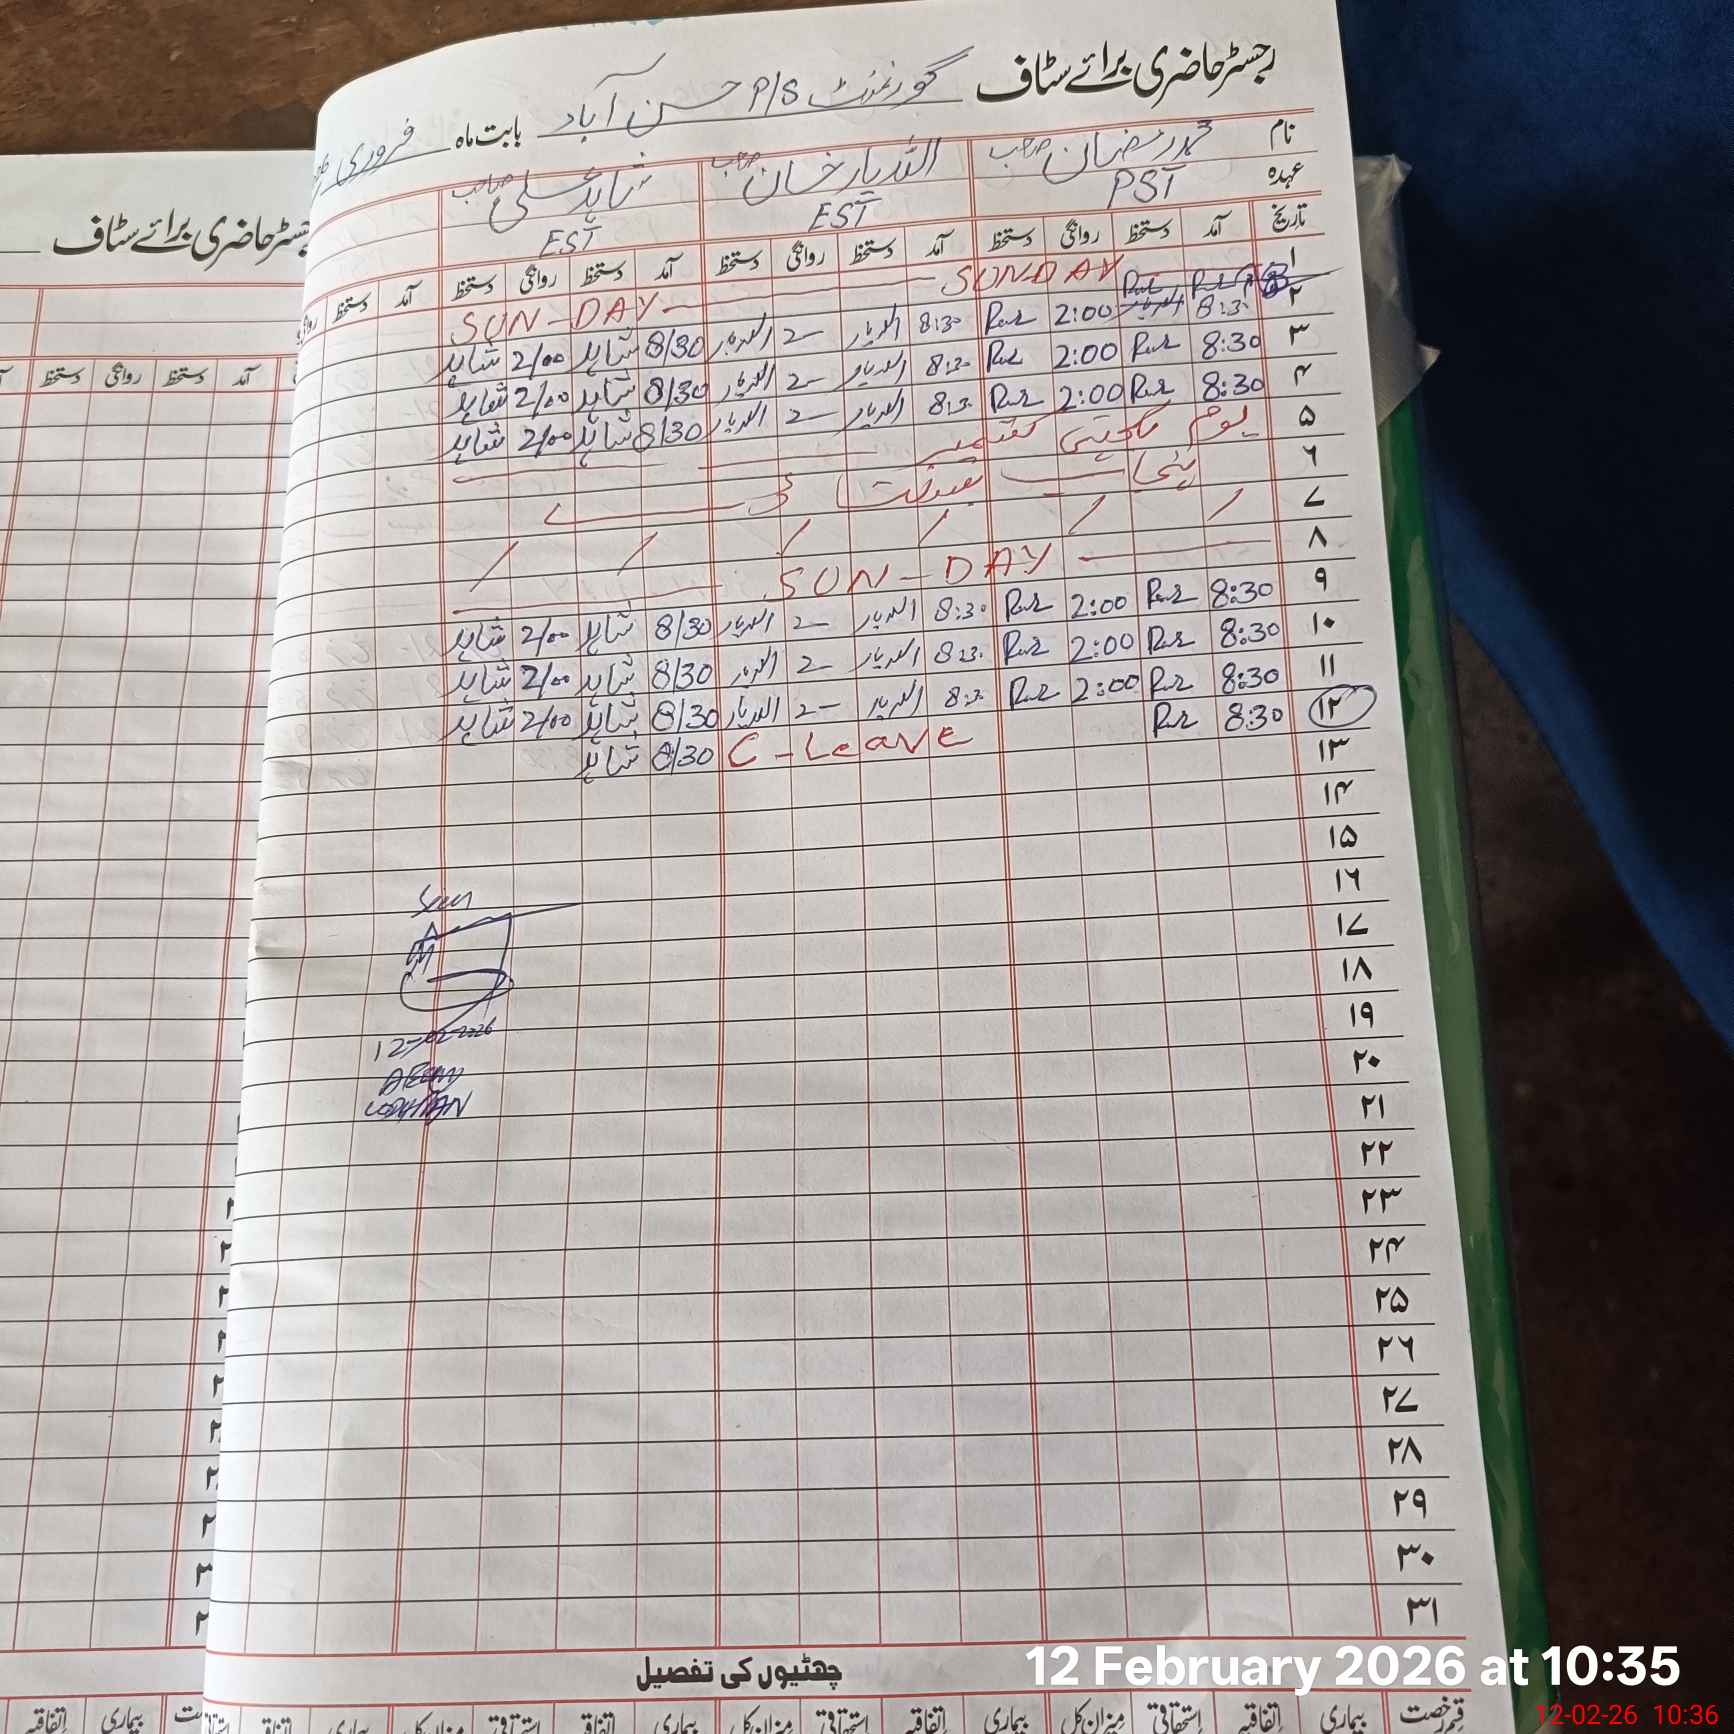 رجسٹر حاضری برائے سٹاف گورنمنٹ P/S حسن آباد بابت ماہ فروری
نام محمد رمضان صاحب اللہ یار خان صاحب شاہد علی صاحب
عہدہ PST EST EST
تاریخ آمد دستخط روانگی دستخط آمد دستخط روانگی دستخط آمد دستخط روانگی دستخط آمد دستخط
۱ SUN-DAY SUN-DAY
۲ 8:30 2:00 8:30 اللہ یار 2 اللہ یار 8/30 شاہد 2/00 شاہد
۳ 8:30 2:00 8:30 اللہ یار 2 اللہ یار 8/30 شاہد 2/00 شاہد
۴ 8:30 2:00 8:30 اللہ یار 2 اللہ یار 8/30 شاہد 2/00 شاہد
۵ یوم یکجہتی کشمیر
۶
۷
۸ SUN-DAY
۹ 8:30 2:00 8:30 اللہ یار 2 اللہ یار 8/30 شاہد 2/00 شاہد
۱۰ 8:30 2:00 8:30 اللہ یار 2 اللہ یار 8/30 شاہد 2/00 شاہد
۱۱ 8:30 2:00 8:30 اللہ یار 2 اللہ یار 8/30 شاہد 2/00 شاہد
۱۲ 8:30 C-Leave 8/30 شاہد
۱۳
۱۴
۱۵
۱۶
Seen
۱۷
۱۸
۱۹
12-02-2026
۲۰
LODHRAN
۲۱
۲۲
۲۳
۲۴
۲۵
۲۶
۲۷
۲۸
۲۹
۳۰
۳۱
چھٹیوں کی تفصیل
قسم رخصت بیماری اتفاقیہ استحقاقی میزان کل بیماری اتفاقیہ استحقاقی میزان کل بیماری اتفاقیہ استحقاقی میزان کل بیماری اتفاقیہ
رجسٹر حاضری برائے سٹاف
آمد دستخط روانگی دستخط
بیماری اتفاقیہ
12 February 2026 at 10:35
12-02-26 10:36